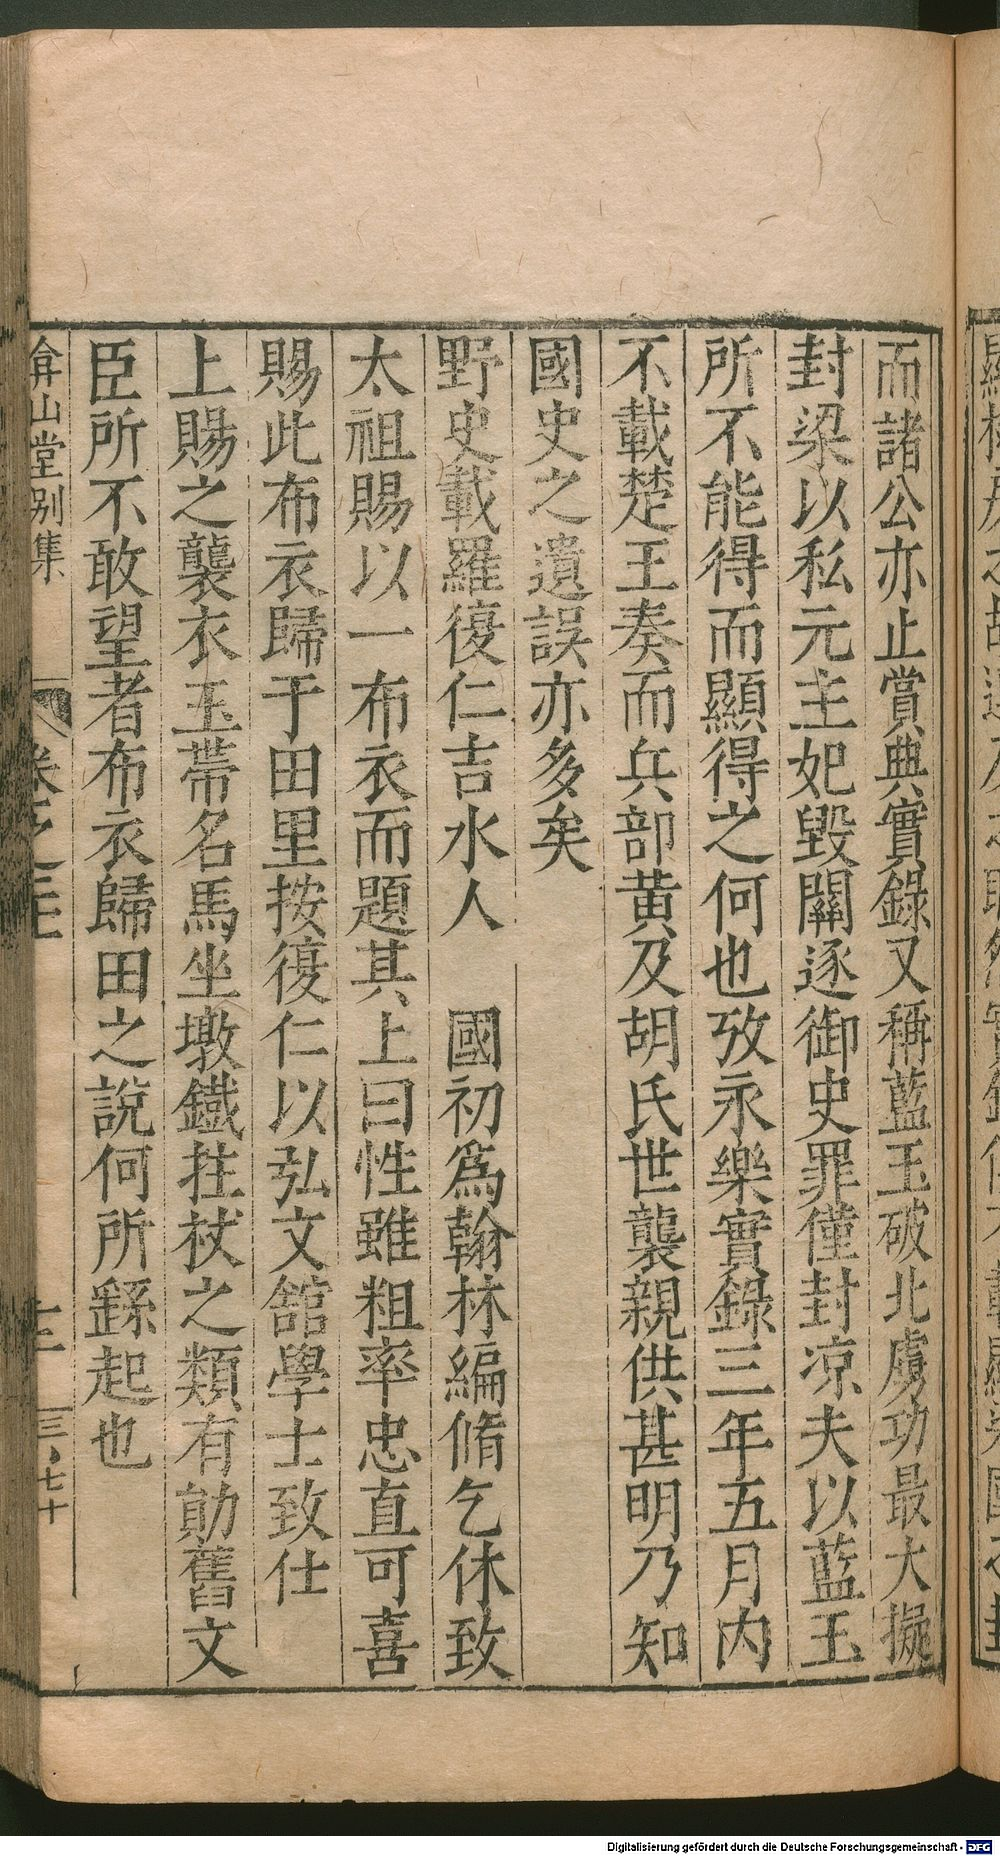 而諸公亦止賞典實錄又稱藍玉破北虜功最大擬
封梁以私元主妃毀關逐御史罪僅封凉夫以藍玉
所不能得而顯得之何也攷永樂實錄三年五月內
不載楚王奏而兵部黃及胡氏世襲親供甚明乃知
國史之遺誤亦多矣
野史載羅復仁吉水人　國初爲翰林編脩乞休致
太祖賜以一布衣而題其上曰性雖粗率忠直可喜
賜此布衣歸于田里按復仁以弘文舘學士致仕
上賜之襲衣玉帶名馬坐墩鐵拄杖之類有勛舊文
臣所不敢望者布衣歸田之說何所繇起也
弇山堂别集
三七十
Digitalisierung gefördert durch die Deutsche Forschungsgemeinschaft - DFG